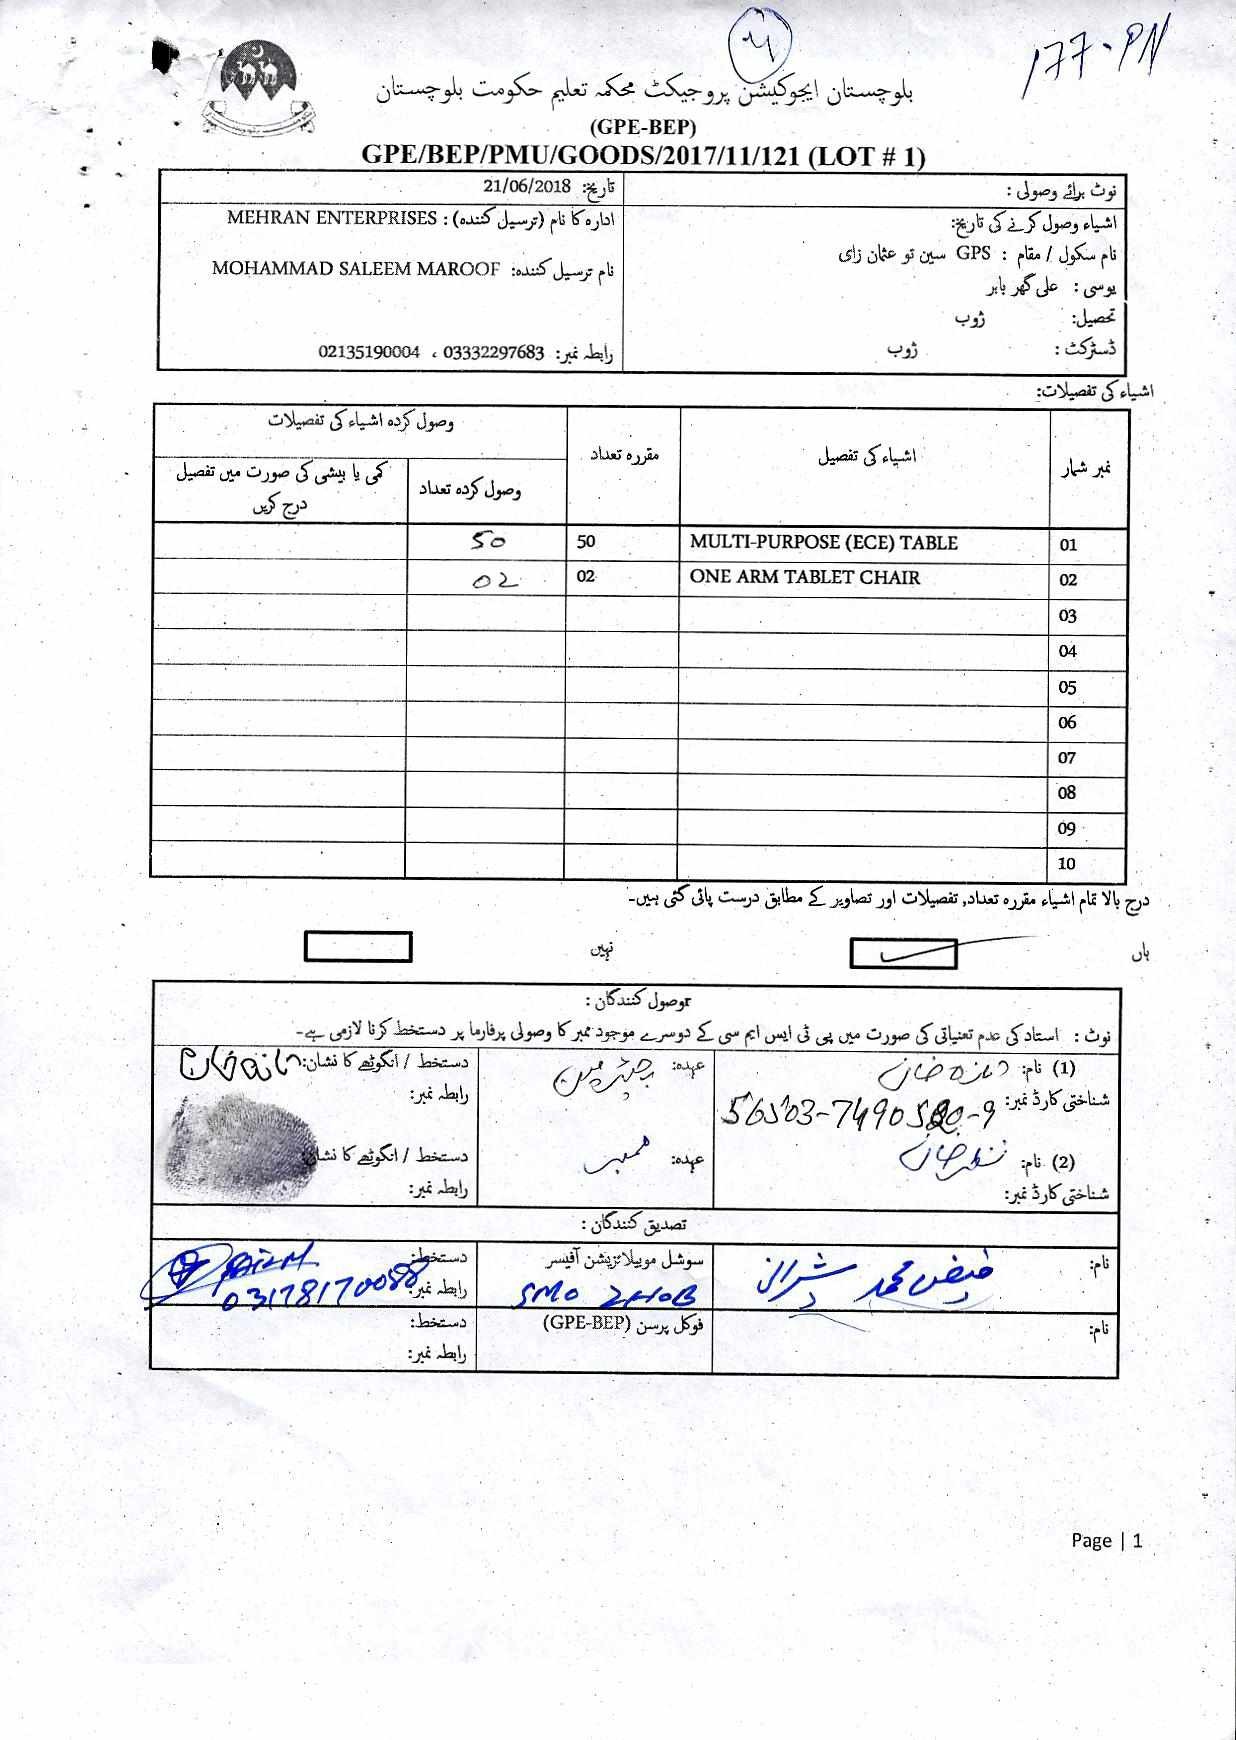 177-PN
بلوچستان ایجوکیشن پروجیکٹ محکمہ تعلیم حکومت بلوچستان
(GPE-BEP)
GPE/BEP/PMU/GOODS/2017/11/121 (LOT # 1)
نوٹ برائے وصولی :
تاریخ: 21/06/2018
اشیاء وصول کرنے کی تاریخ:
ادارہ کا نام (ترسیل کنندہ) : MEHRAN ENTERPRISES
نام سکول / مقام : GPS سین تو عثمان زای
نام ترسیل کنندہ: MOHAMMAD SALEEM MAROOF
یوسی : علی گھر بابر
تحصیل: ژوب
ڈسٹرکٹ : ژوب
رابطہ نمبر: 03332297683 ، 02135190004
اشیاء کی تفصیلات:
نمبر شمار اشیاء کی تفصیل مقررہ تعداد وصول کردہ اشیاء کی تفصیلات
وصول کردہ تعداد کمی یا بیشی کی صورت میں تفصیل
درج کریں
01 MULTI-PURPOSE (ECE) TABLE 50 50
02 ONE ARM TABLET CHAIR 02 02
03
04
05
06
07
08
09
10
درج بالا تمام اشیاء مقررہ تعداد, تفصیلات اور تصاویر کے مطابق درست پائی گئی ہیں۔
ہاں نہیں
وصول کنندگان :
نوٹ : استاد کی عدم تعنیاتی کی صورت میں پی ٹی ایس ایم سی کے دوسرے موجود ممبر کا وصولی پرفارما پر دستخط کرنا لازمی ہے۔
(1) نام: عہدہ: چیئرمین دستخط / انگوٹھے کا نشان:
شناختی کارڈ نمبر: رابطہ نمبر:
(2) نام: عہدہ: ممبر دستخط / انگوٹھے کا نشان
شناختی کارڈ نمبر: رابطہ نمبر:
تصدیق کنندگان :
نام: فیض محمد شیرانی سوشل موبیلائزیشن آفیسر دستخط:
SMO ZHOB رابطہ نمبر: 03178170088
نام: فوکل پرسن (GPE-BEP) دستخط:
رابطہ نمبر:
Page | 1